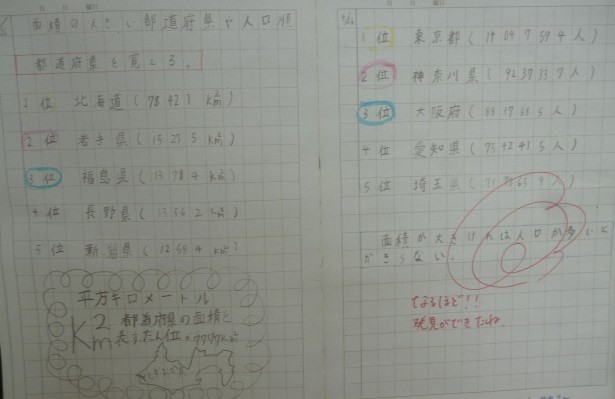 面積の大きい都道府県や人口順
都道府県を覚える。
1位 北海道(78421km²)
2位 岩手県(15275km²)
3位 福島県(13784km²)
4位 長野県(13562km²)
5位 新潟県(12584km²)
平方キロメートル
km²
都道府県の面積を
表すたん位。
1位 東京都(
2位 神奈川県(9237337人)
3位 大阪府(
4位 愛知県(7542415人)
5位 埼玉県(
面積が大きければ人口が多いと
かぎらない。
なるほど!!
発見ができたね。